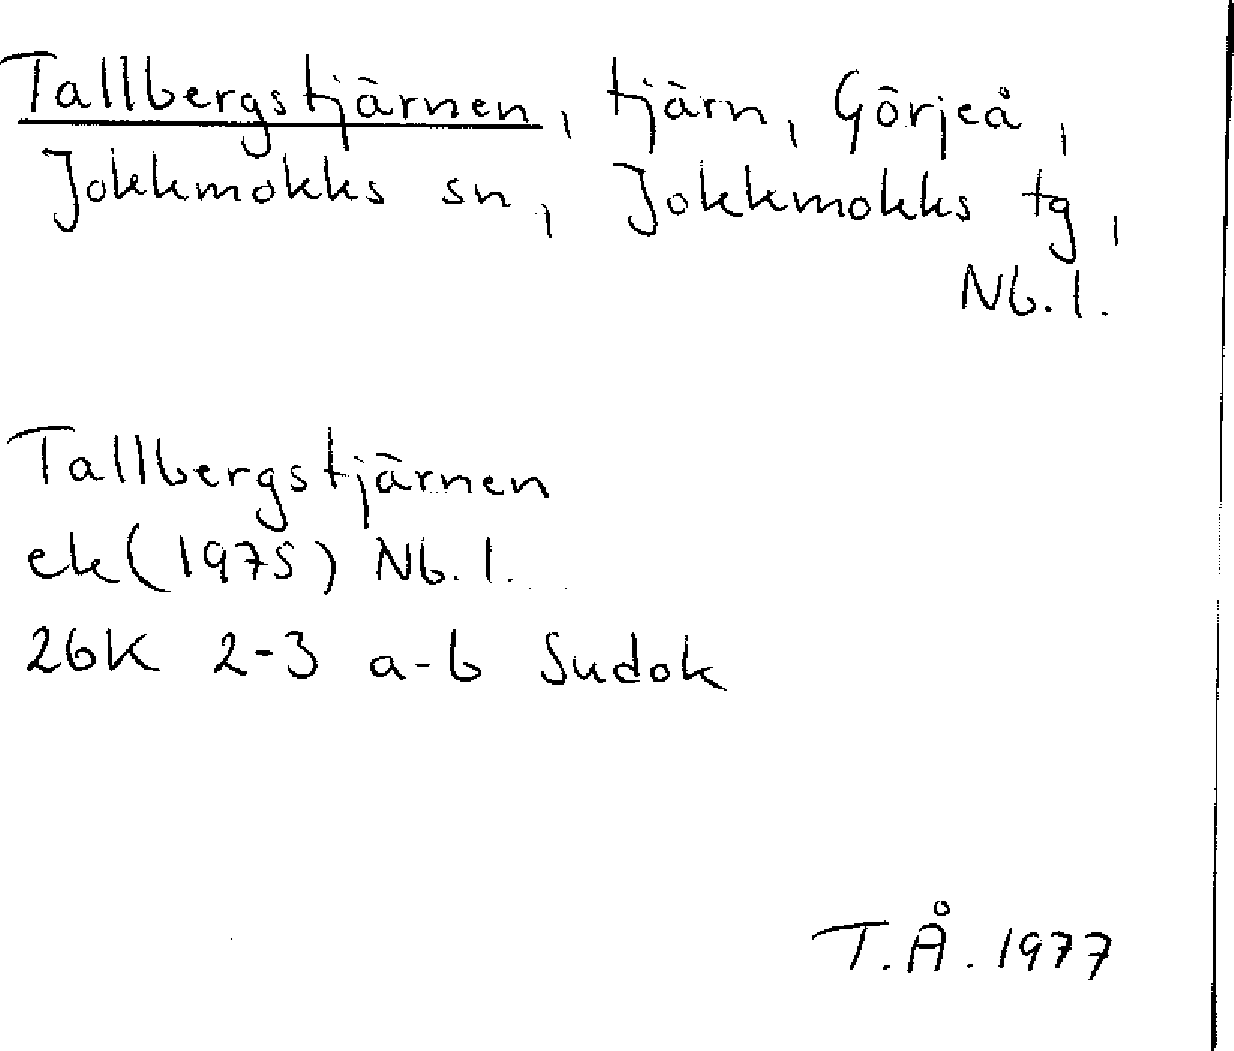 Tallbergstjärnen, tjärn, Görjeå,
Jokkmokks sn, Jokkmokks tg,
Nb. l.
Tallbergstjärnen
ek (1975) Nb. l.
26K 2-3 a-b Sudok
T.Å. 1977